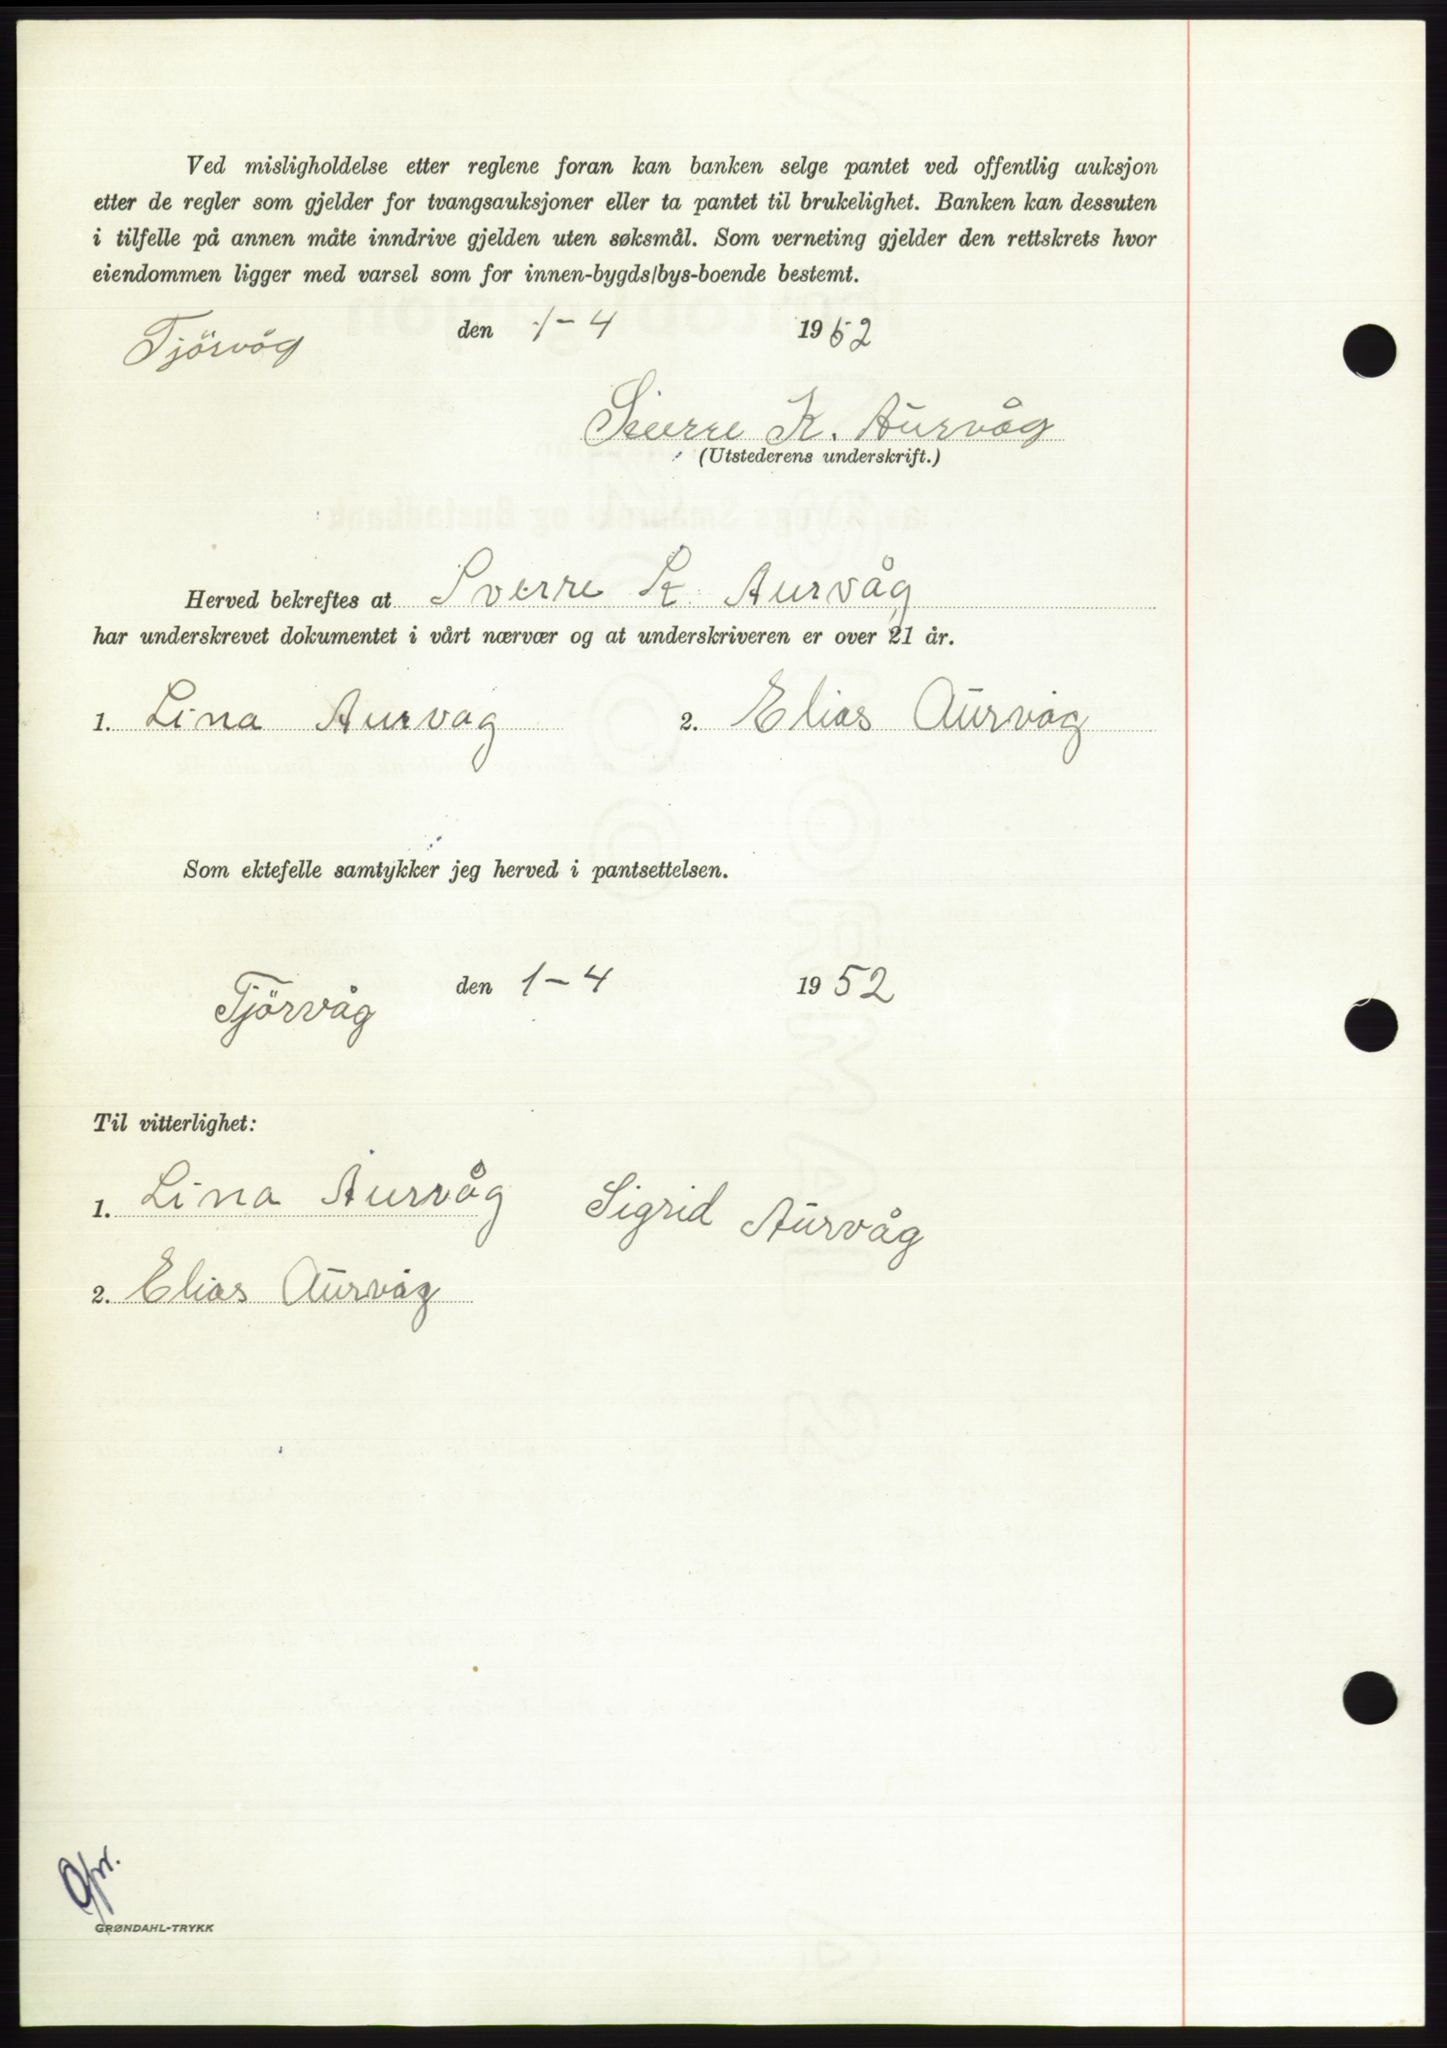 Ved misligholdelse etter reglene foran kan banken selge pantet ved offentlig auksjon
etter de regler som gjelder for tvangsauksjoner eller ta pantet til brukelighet. Banken kan dessuten
i tilfelle på annen måte inndrive gjelden uten søksmål. Som verneting gjelder den rettskrets hvor
eiendommen ligger med varsel som for innen-bygds/bys-boende bestemt.
Tjörvåg den 1-4 1952
Sverre K. Aurvåg
(Utstederens underskrift.)
Herved bekreftes at Sverre K. Aurvåg
har underskrevet dokumentet i vårt nærvær og at underskriveren er over 21 år.
1. Lina Aurvag 2. Elias Aurvåg
Som ektefelle samtykker jeg herved i pantsettelsen.
Tjörvåg den 1-4 1952
Til vitterlighet:
1. Lina Aurvåg Sigrid Aurvåg
2. Elias Aurvåg
GRØNDAHL-TRYKK